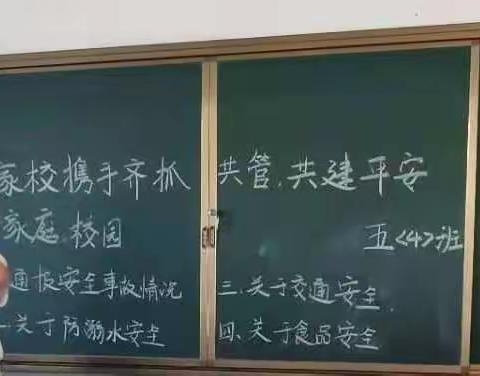 家校携手齐抓共管、共建平安
家庭 校园
五<4>班
通报安全事故情况
关于防溺水安全
三、关于交通安全
四、关于食品安全